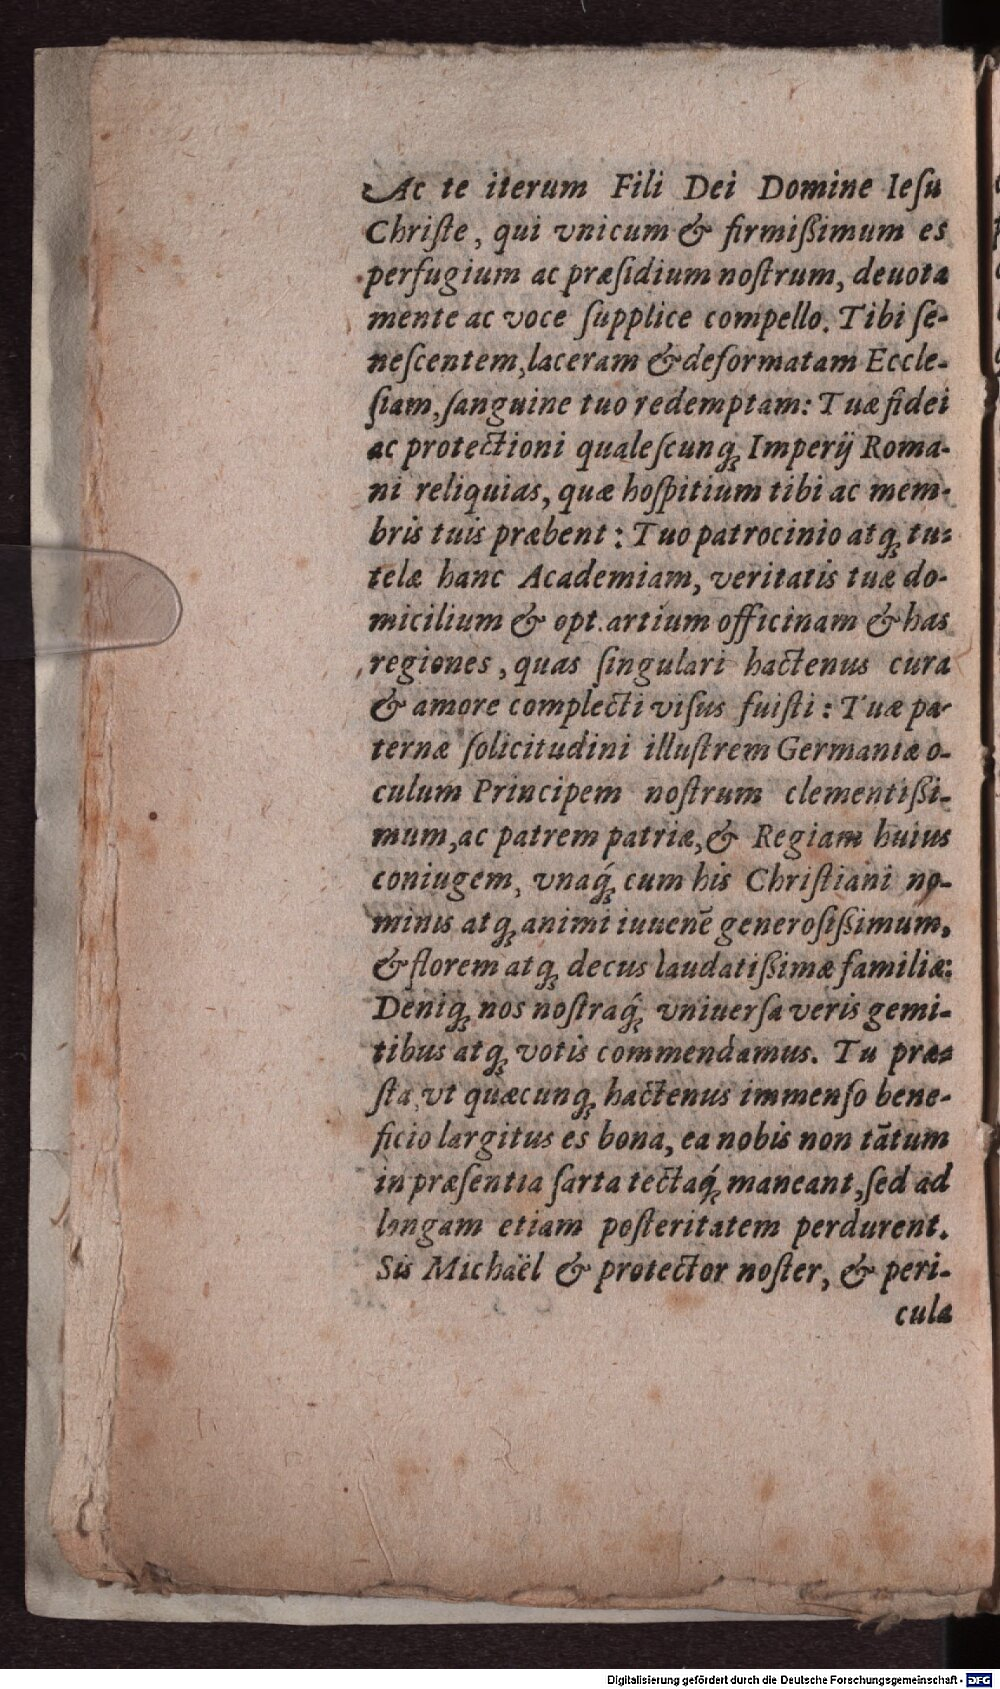 Ac te iterum Fili Dei Domine Ieſu
Chriſte, qui vnicum & firmißimum es
perfugium ac præſidium noſtrum, deuota
mente ac voce ſupplice compello. Tibi ſe-
neſcentem, laceram & deformatam Eccle-
ſiam, ſanguine tuo redemptam: Tuæ fidei
ac protectioni qualeſcunq́; Imperij Roma-
ni reliquias, quæ hoſpitium tibi ac mem-
bris tuis præbent: Tuo patrocinio atq; tu-
telæ hanc Academiam, veritatis tuæ do-
micilium & opt. artium officinam & has
regiones, quas ſingulari hactenus cura
& amore complecti viſus fuiſti: Tuæ pa-
ternæ ſolicitudini illuſtrem Germaniæ o-
culum Principem noſtrum clementißi-
mum, ac patrem patriæ, & Regiam huius
coniugem, vnaq́; cum his Chriſtiani no-
minis atq; animi iuuenē generoſißimum,
& florem atq; decus laudatißimæ familiæ:
Deniq; nos noſtraq́; vniuerſa veris gemi-
tibus atq; votis commendamus. Tu præ-
ſta, vt quæcunq; hactenus immenſo bene-
ficio largitus es bona, ea nobis non tātum
in præſentia ſarta tectaq́; maneant, ſed ad
longam etiam poſteritatem perdurent.
Sis Michaël & protector noſter, & peri-
cula
Digitalisierung gefördert durch die Deutsche Forschungsgemeinschaft - DFG